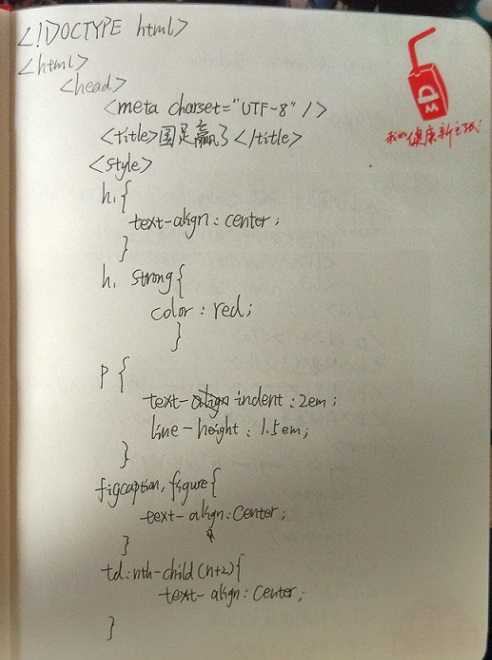 <!DOCTYPE html>
<html>
<head>
<meta charset="UTF-8" />
<title>国足赢了</title>
<style>
h1{
text-align: center;
}
h1 strong{
color: red;
}
p {
text-indent: 2em;
line-height: 1.5em;
}
figcaption, figure{
text-align: center;
}
td:nth-child(n+2){
text-align: center;
}
我的健康新主张